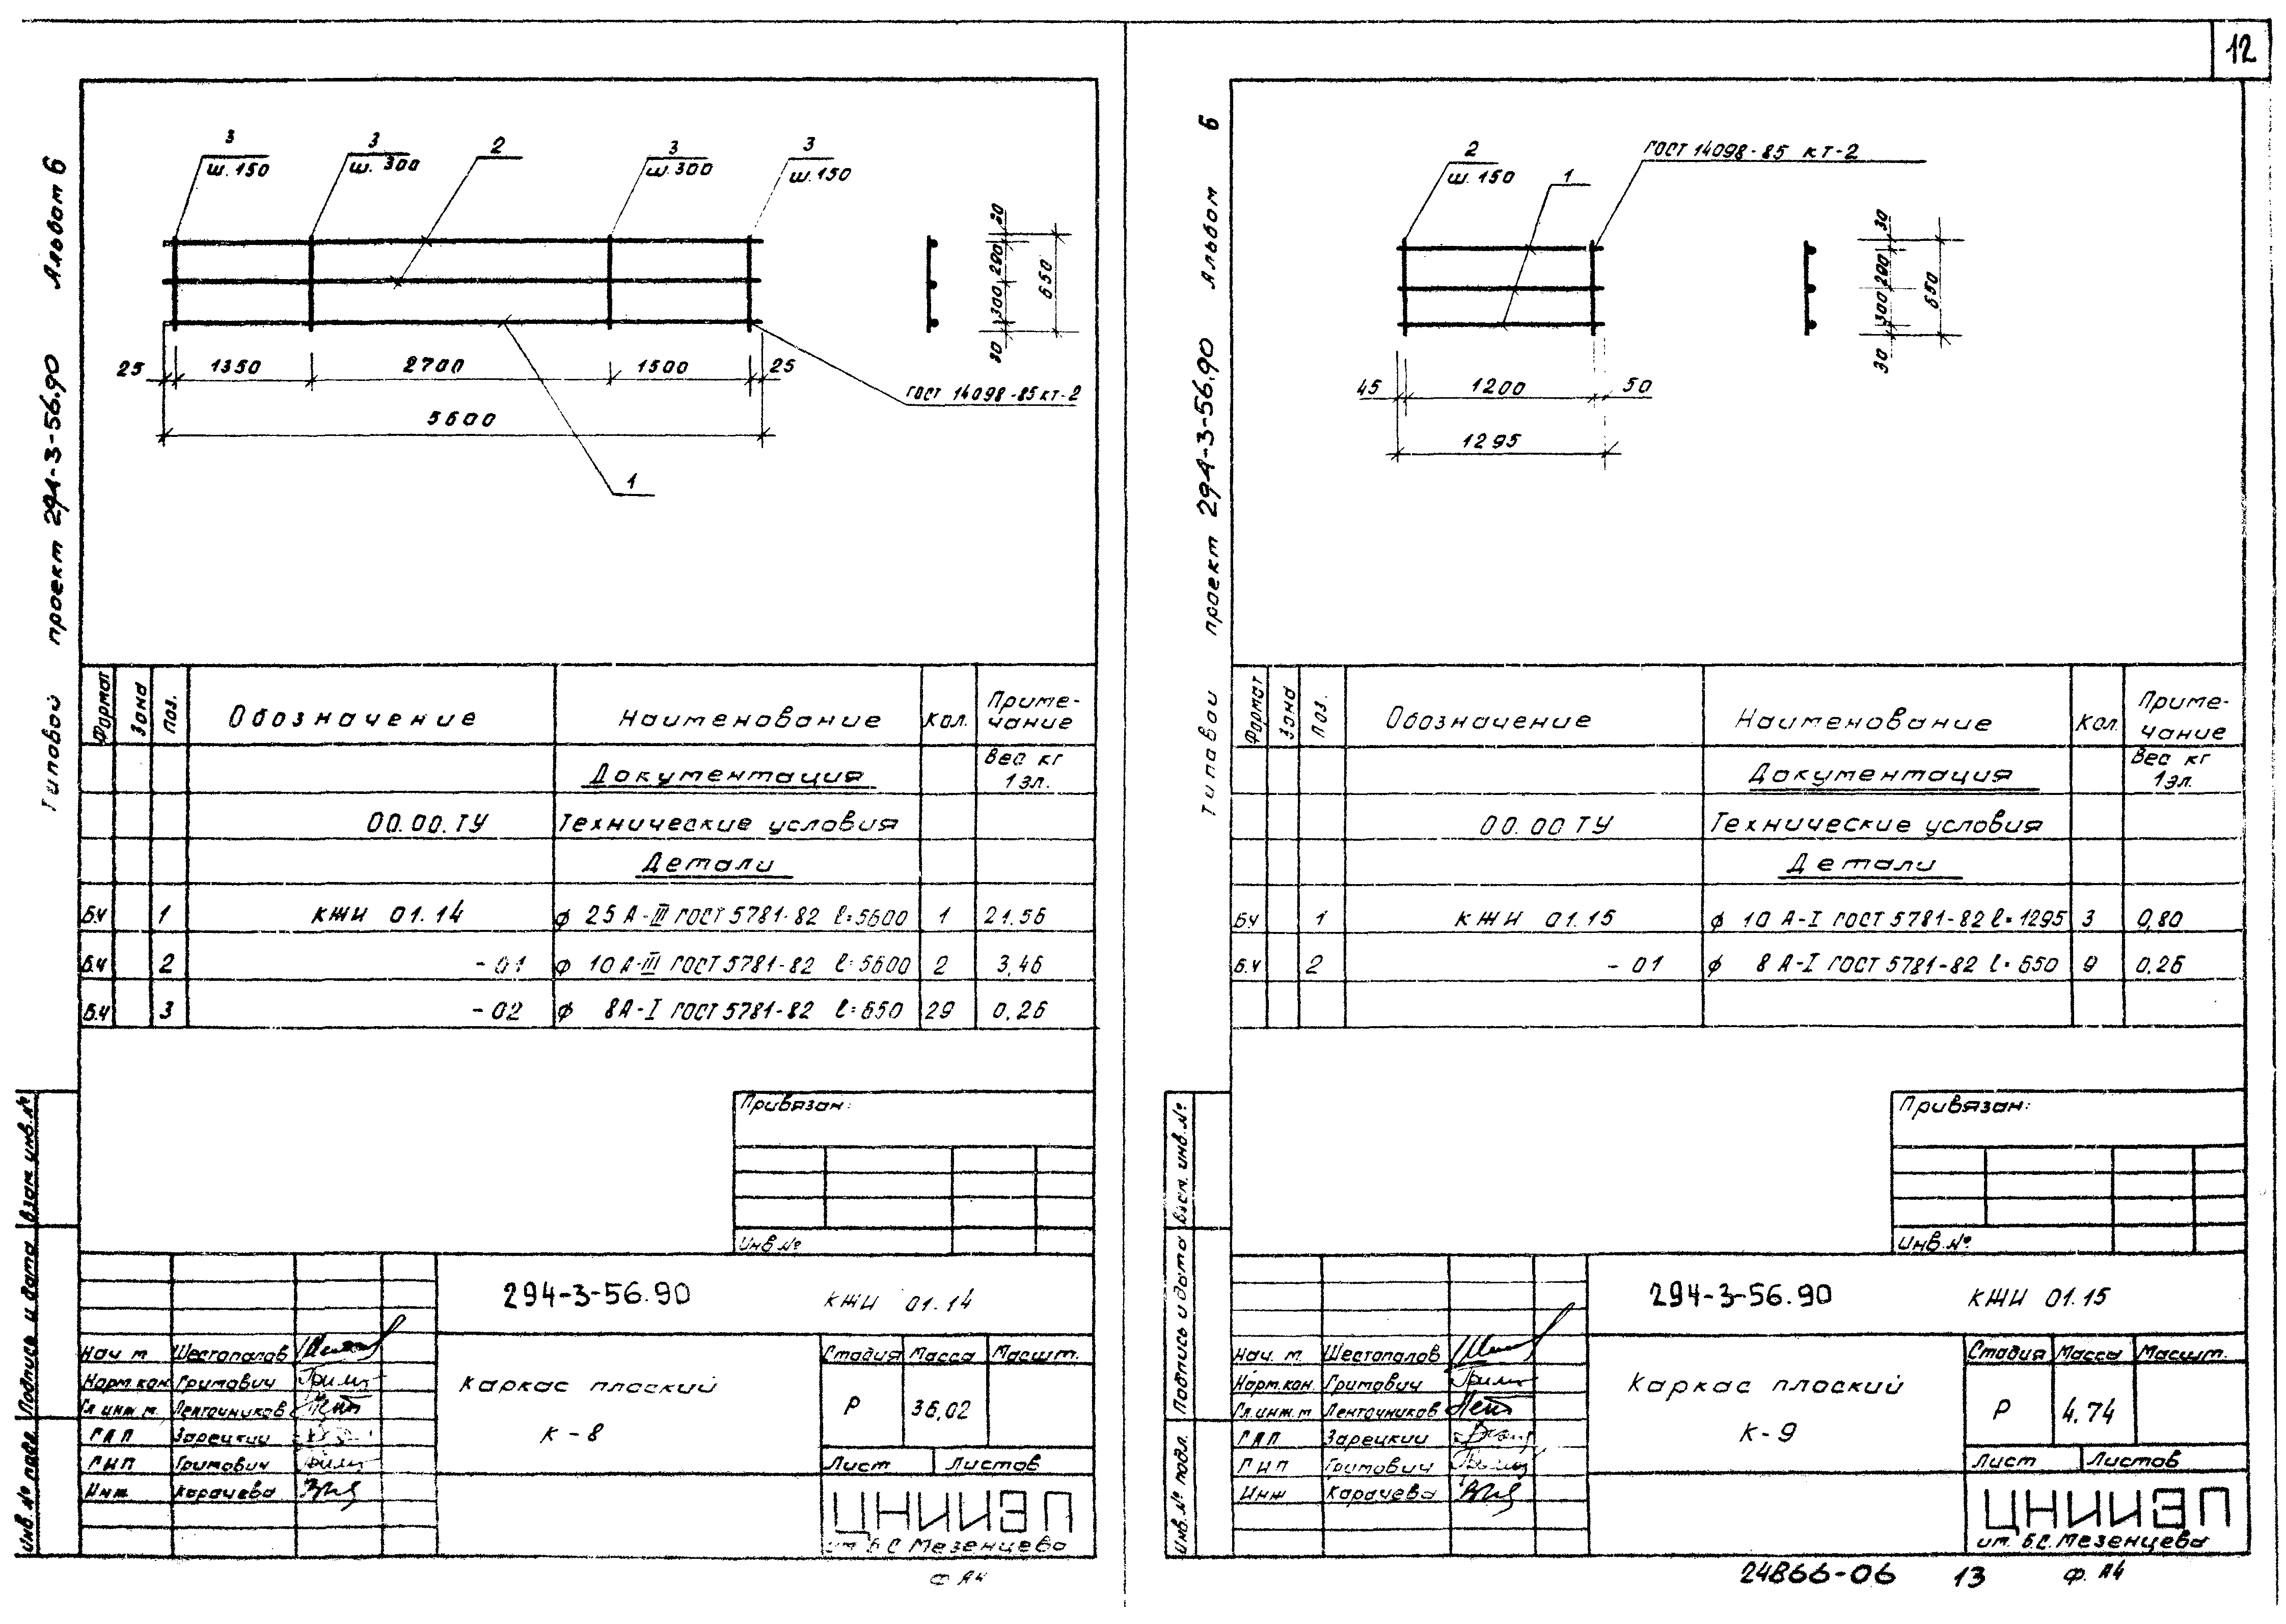 12
Типовой проект 294-3-56.90 Альбом 6
3
ш. 150
3
ш. 300
2
3
ш. 300
3
ш. 150
30
290
300
30
650
25
1350
2700
1500
25
5600
ГОСТ 14098-85 кт-2
1
Формат
Зона
Поз.
Обозначение
Наименование
Кол.
Приме-
чание
Документация
Вес кг
1эл.
00.00.ТУ Технические условия
Детали
Б.Ч 1 КЖИ 01.14 ф 25 А-III ГОСТ 5781-82 ℓ=5600 1 21.56
Б.Ч 2 -01 ф 10 А-III ГОСТ 5781-82 ℓ=5600 2 3,46
Б.Ч 3 -02 ф 8А-I ГОСТ 5781-82 ℓ=650 29 0,26
Привязан:
Инв.№
294-3-56.90 КЖИ 01.14
Нач м Шестопалов
Норм.кон. Гритович
Гл.инж.м. Ленточников
ГАП Зарецкий
ГИП Гритович
Инж Карачева
Каркас плоский
К-8
Стадия Масса Масшт.
Р 36,02
Лист Листов
ЦНИИЭП
им. Б.С. Мезенцева
ф А4
Инв. № подл. Подпись и дата Взам. инв. №
Типовой проект 294-3-56.90 Альбом 6
2
ш. 150
1
ГОСТ 14098-85 кт-2
30
290
300
30
650
45
1200
50
1295
Формат
Зона
Поз.
Обозначение
Наименование
Кол.
Приме-
чание
Документация
Вес кг
1эл.
00.00 ТУ Технические условия
Детали
Б.Ч 1 КЖИ 01.15 ф 10 А-I ГОСТ 5781-82 ℓ=1295 3 0,80
Б.Ч 2 -01 ф 8 А-I ГОСТ 5781-82 ℓ=650 9 0,26
Привязан:
Инв.№
294-3-56.90 КЖИ 01.15
Нач. м Шестопалов
Норм.кон. Гритович
Гл.инж.м Ленточников
ГАП Зарецкий
ГИП Гритович
Инж Карачева
Каркас плоский
К-9
Стадия Масса Масшт.
Р 4.74
Лист Листов
ЦНИИЭП
им. Б.С. Мезенцева
Инв. № подл. Подпись и дата Взам. инв. №
24866-06 13 ф. А4